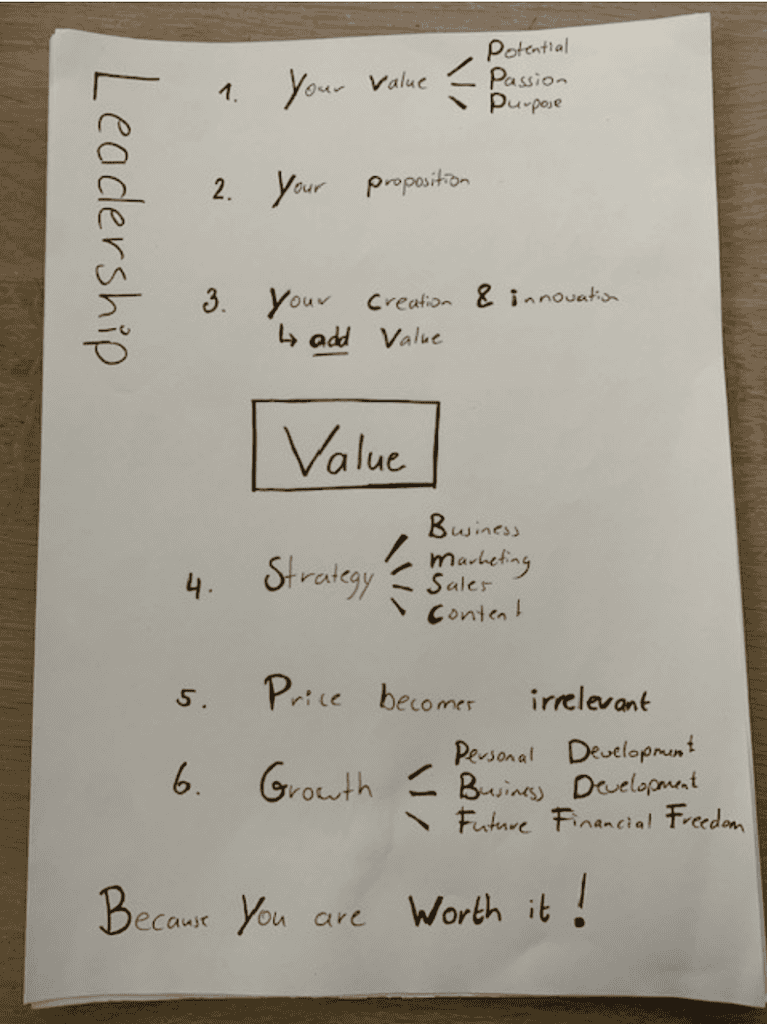 Leadership
1. Your Value
Potential
Passion
Purpose
2. Your proposition
3. Your Creation & innovation
↳ add Value
Value
4. Strategy
Business
Marketing
Sales
Content
5. Price becomes irrelevant
6. Growth
Personal Development
Business Development
Future Financial Freedom
Because You are Worth it!